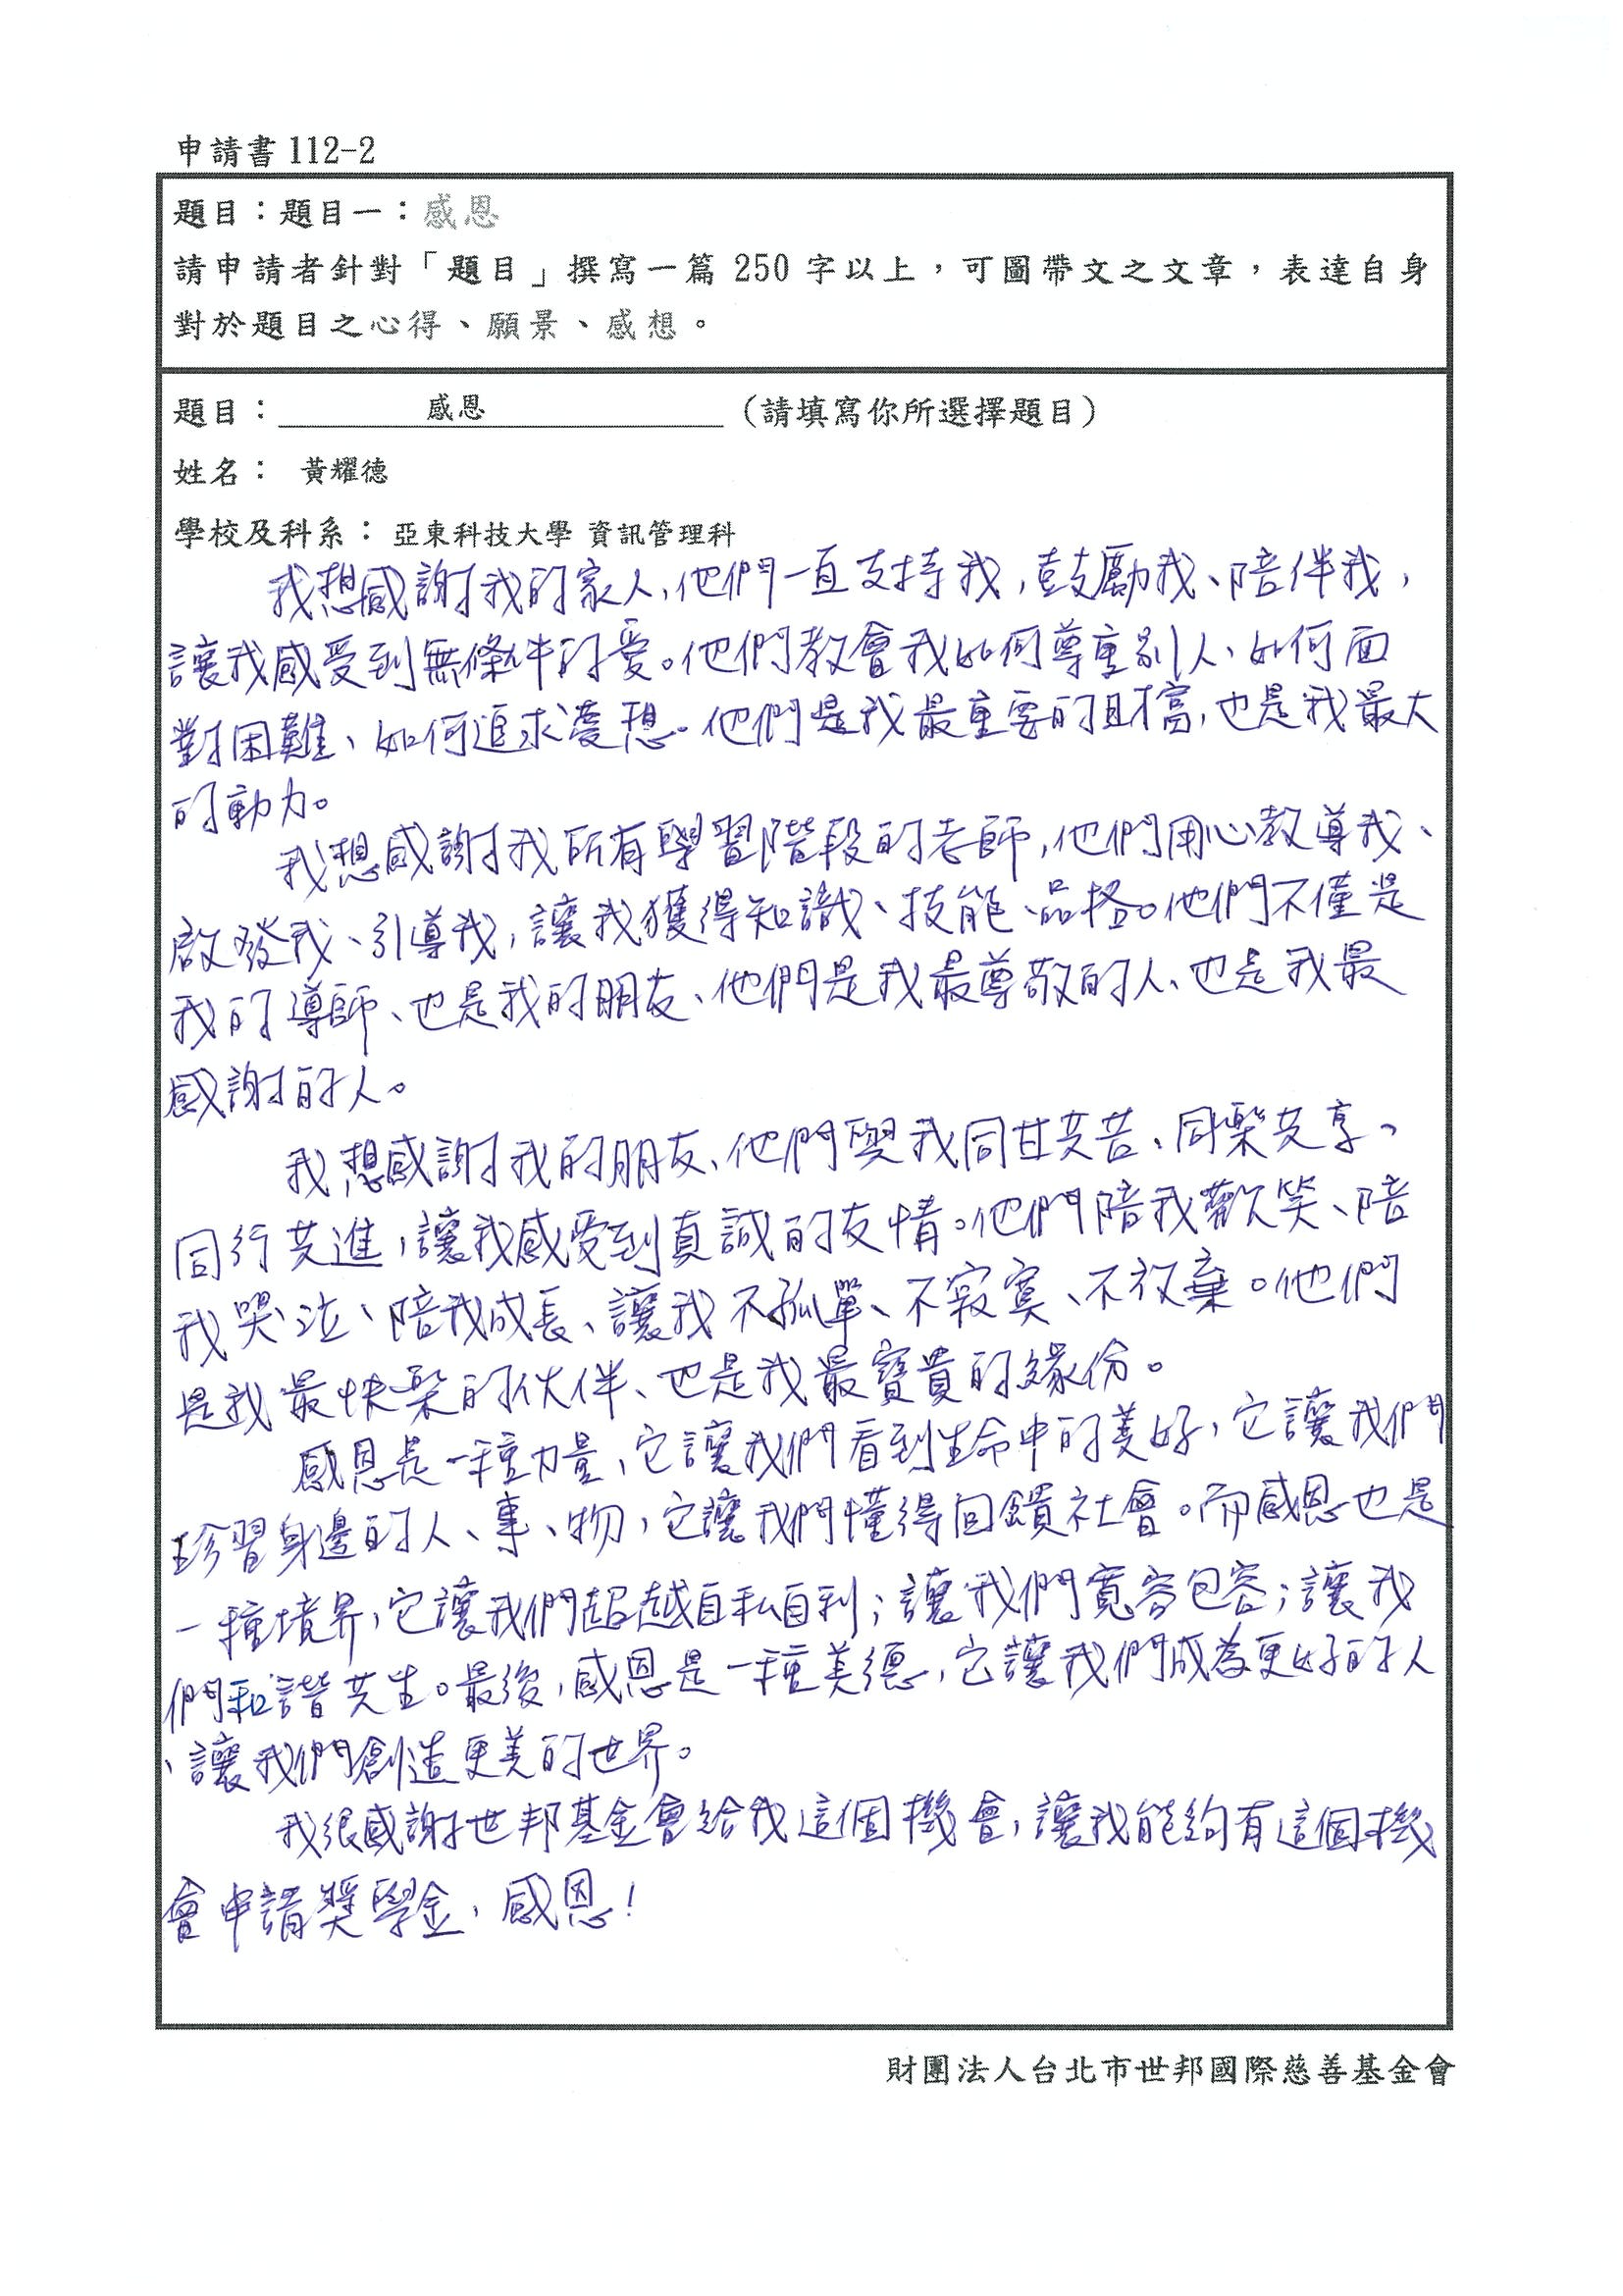 申請書 112-2
題目：題目一：感恩
請申請者針對「題目」撰寫一篇 250 字以上，可圖帶文之文章，表達自身
對於題目之心得、願景、感想。
題目： 感恩 （請填寫你所選擇題目）
姓名： 黃耀德
學校及科系： 亞東科技大學 資訊管理科
我想感謝我的家人，他們一直支持我，鼓勵我、陪伴我，
讓我感受到無條件的愛。他們教會我如何尊重別人、如何面
對困難、如何追求夢想。他們是我最重要的財富，也是我最大
的動力。
我想感謝我所有學習階段的老師，他們用心教導我、
啟發我、引導我，讓我獲得知識、技能、品格。他們不僅是
我的導師、也是我的朋友、他們是我最尊敬的人、也是我最
感謝的人。
我想感謝我的朋友、他們與我同甘共苦、同樂共享、
同行共進，讓我感受到真誠的友情。他們陪我歡笑、陪
我哭泣、陪我成長、讓我不孤單、不寂寞、不放棄。他們
是我最快樂的伙伴、也是我最寶貴的緣份。
感恩是一種力量，它讓我們看到生命中的美好，它讓我們
珍習身邊的人、事、物，它讓我們懂得回饋社會。而感恩也是
一種境界，它讓我們超越自私自利；讓我們寬容包容；讓我
們和諧共生。最後，感恩是一種美德，它讓我們成為更好的人
、讓我們創造更美的世界。
我很感謝世邦基金會給我這個機會，讓我能夠有這個機
會申請獎學金，感恩！
財團法人台北市世邦國際慈善基金會